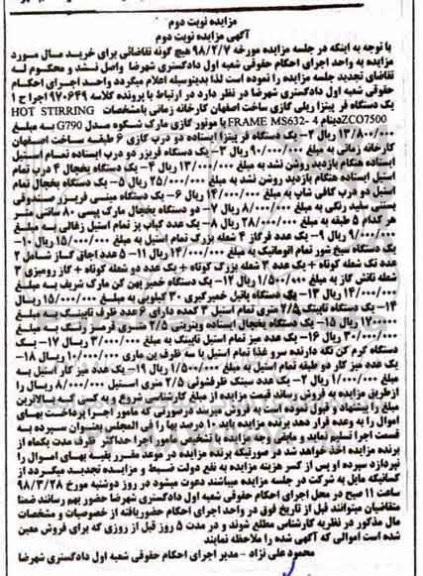 مزایده نوبت دوم
آگهی مزایده نوبت دوم
با توجه به اینکه در جلسه مزایده مورخه ۹۸/۲/۷ هیچ گونه تقاضائی برای خرید مال مورد
مزایده به واحد اجرای احکام حقوقی شعبه اول دادگستری شهرضا واصل نشد و محکوم له
تقاضای تجدید جلسه مزایده را نموده است لذا بدینوسیله اعلام میگردد واحد اجرای احکام
حقوقی شعبه اول دادگستری شهرضا در نظر دارد در ارتباط با پرونده کلاسه ۹۷۰۶۴۹ اجرا ح ۱
یک دستگاه فر پیتزا ریلی گازی ساخت اصفهان کارخانه زمانی بامشخصات HOT STIRRING
ZCO7500 دینام FRAME MS632- 4 با موتور گازی مارک شکوه مدل G790 به مبلغ
۱۳/۸۰۰/۰۰۰ ریال ۲- یک دستگاه فر پیتزا ایستاده دو درب گازی ۶ طبقه ساخت اصفهان
کارخانه زمانی به مبلغ ۹۰/۰۰۰/۰۰۰ ریال ۳- یک دستگاه فریزر دو درب ایستاده تمام استیل
ایستاده هنگام بازدید روشن نشد به مبلغ ۱۳/۰۰۰/۰۰۰ ریال ۴- یک دستگاه یخچال ۴ درب تمام
استیل ایستاده هنگام بازدید روشن نشد به مبلغ ۲۵/۰۰۰/۰۰۰ ریال ۵- یک دستگاه یخچال تمام
استیل دو درب کافی شاپ به مبلغ ۱۴/۰۰۰/۰۰۰ ریال ۶- یک دستگاه مینی فریزر صندوقی
پستنی سفید رنگی به مبلغ ۸/۰۰۰/۰۰۰ ریال ۷- دو دستگاه یخچال مارک پپسی ۸۰ سانتی متر
هر کدام ۵ طبقه به مبلغ ۲۸/۰۰۰/۰۰۰ ریال ۸- یک عدد کباب پز تمام استیل زغالی به مبلغ
۹/۰۰۰/۰۰۰ ریال ۹- یک عدد فرگاز ۴ شعله بزرگ تمام استیل به مبلغ ۱۵/۰۰۰/۰۰۰ ریال ۱۰-
یک دستگاه سیخ شور تمام اتوماتیک به مبلغ ۱۴/۰۰۰/۰۰۰ ریال ۱۱- ۵ عدد اجاق گاز شامل ۲
عدد تک شعله کوتاه + یک عدد ۳ شعله بزرگ کوتاه + یک عدد دو شعله کوتاه + گاز رومیزی ۳
شعله تاتش گاز به مبلغ ۱/۵۰۰/۰۰۰ ریال ۱۲- یک دستگاه خمیر پهن کن مارک شریف به مبلغ
۱۴/۰۰۰/۰۰۰ ریال ۱۳- یک دستگاه پاتیل خمیرگیری ۳۰ کیلویی به مبلغ ۱۵/۰۰۰/۰۰۰ ریال
۱۴- یک دستگاه تاپینگ ۲/۵ متری تمام استیل ۳ کمده دارای ۶ عدد ظرف تاپینگ به مبلغ
ریال ۱۵- یک دستگاه یخچال ایستاده ویترینی ۲/۵ متری قرمز رنگ به مبلغ
۳۰/۰۰۰/۰۰۰ ریال ۱۶- یک عدد میز تمام استیل تاپینگ به مبلغ ۳/۰۰۰/۰۰۰ ریال ۱۷- یک
دستگاه گرم کن تکه دارنده سرو غذا تمام استیل با سه ظرف بن ماری ۱۰/۰۰۰/۰۰۰ ریال ۱۸-
یک عدد میز کار دو طبقه تمام استیل به مبلغ ۱/۵۰۰/۰۰۰ ریال ۱۹- یک عدد میز کار استیل به
مبلغ ۱/۰۰۰/۰۰۰ ریال ۲- یک عدد سینک ظرفشوئی ۲/۵ متری استیل ۸/۰۰۰/۰۰۰ ریال را
ازطریق مزایده به فروش رساند قیمت مزایده از مبلغ کارشناسی شروع و به کسی که بالاترین
مبلغ را پیشنهاد و قبول نموده است به فروش میرسد درصورتی که مامور اجرا پرداخت بهای
اموال را به وعده قرار دهد برنده مزایده باید ۱۰ درصد بها را فی المجلس بعنوان سپرده به
قسمت اجرا تسلیم نماید و مابقی وجه مزایده با تشخیص مامور اجرا حداکثر ظرف مدت یکماه از
برنده مزایده اخذ خواهد شد در صورتیکه برنده مزایده در موعد مقرر بقیه بهای اموال را
نپردازد سپرده او پس از کسر هزینه مزایده به نفع دولت ضبط و مزایده تجدید میگردد از
کسانیکه مایل به شرکت در جلسه مزایده میباشند دعوت میشود در روز دوشنبه مورخ ۹۸/۳/۲۸
ساعت ۱۱ صبح در محل اجرای احکام حقوقی شعبه اول دادگستری شهرضا حضور بهم رسانند ضمنا
متقاضیان میتوانند قبل از تاریخ فوق در واحد اجرای احکام حضوریافته از خصوصیات و مشخصات
مال مذکور در نظریه کارشناسی مطلع شوند و در مدت ۵ روز قبل از روزی که برای فروش معین
شده است اموالی که آگهی شده را ملاحظه نمایند
محمود علی نژاد - مدیر اجرای احکام حقوقی شعبه اول دادگستری شهرضا